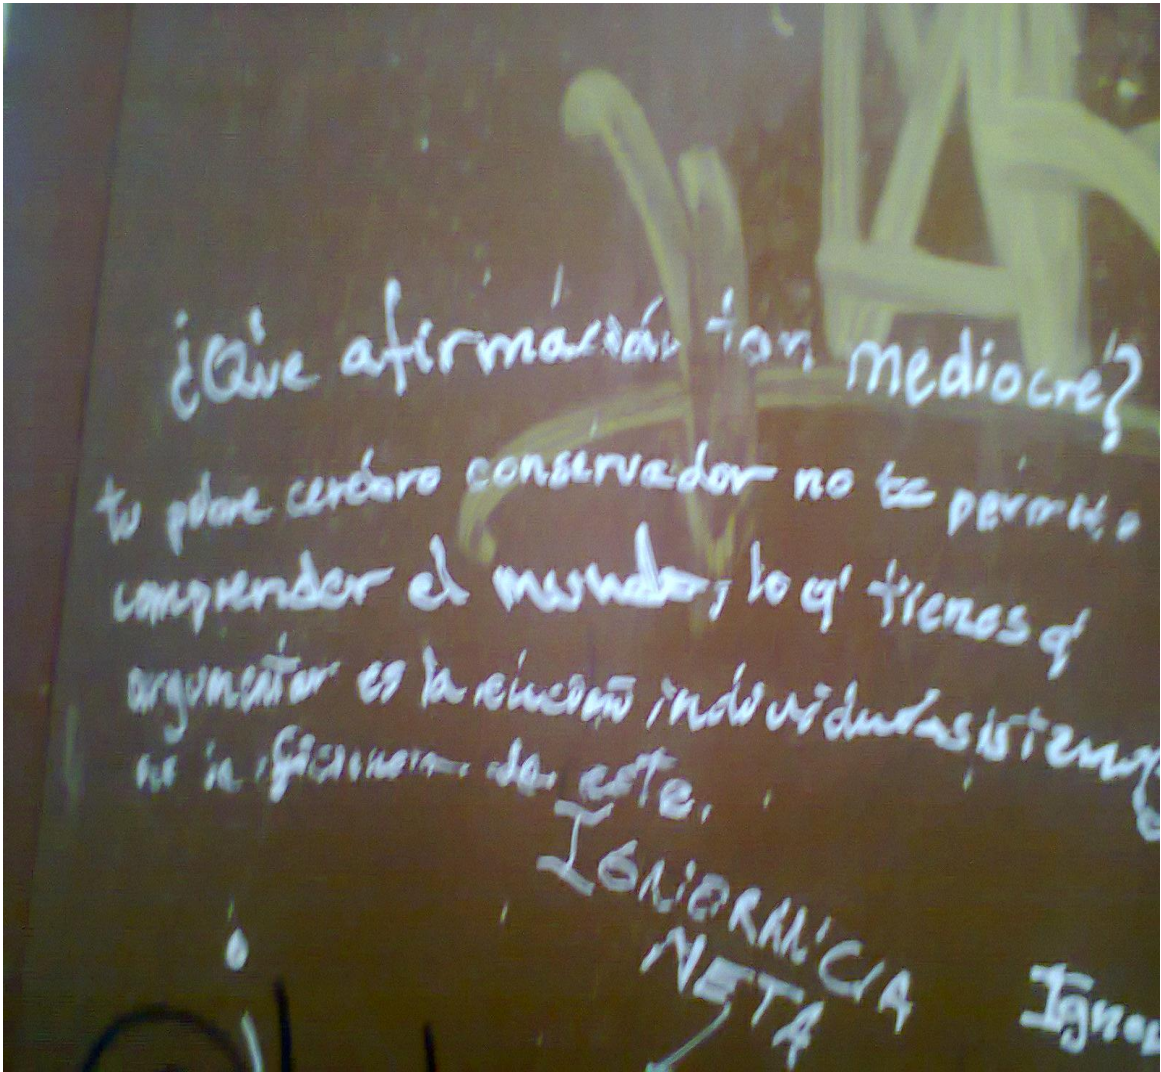 ¿Que afirmación tan mediocre?
tu pobre cerebro conservador no te permite
comprender el mundo, lo q' tienes q'
argumentar es la individuo sistema
no la de este.
IGNORANCIA
NETA
Igno